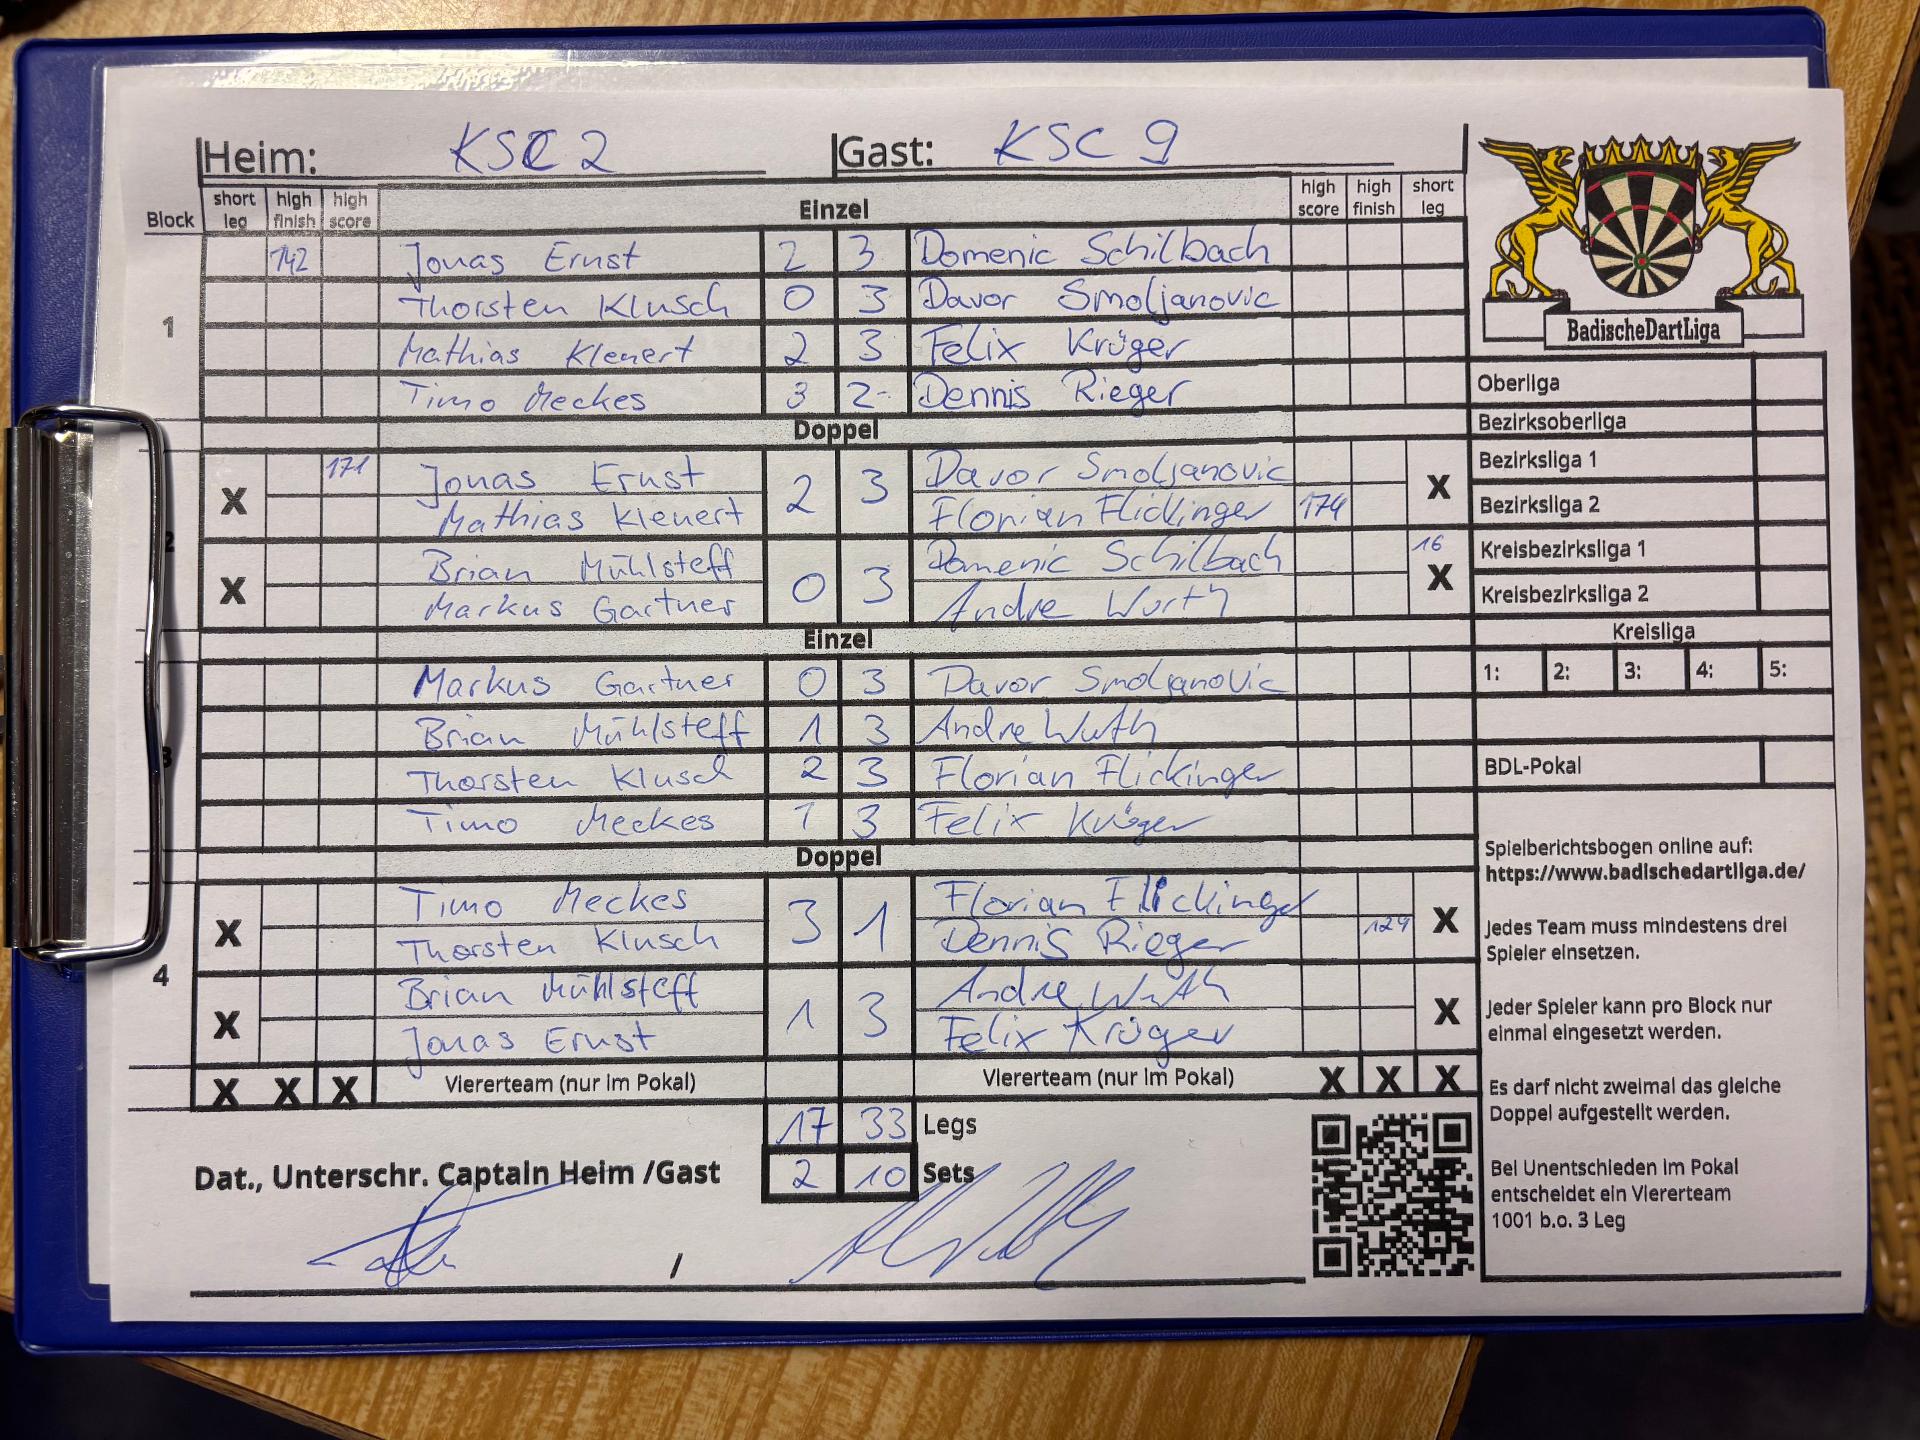 Heim: KSC 2 Gast: KSC 9
Block short leg high finish high score Einzel high score high finish short leg
142 Jonas Ernst 2 3 Domenic Schilbach
Thorsten Klusch 0 3 Davor Smoljanovic
1
Mathias Kleuert 2 3 Felix Krüger
Timo Meckes 3 2 Dennis Rieger
Doppel
X 171 Jonas Ernst 2 3 Davor Smoljanovic X
Mathias Kleuert Florian Flickinger 174
2
X Brian Mühlsteff 0 3 Domenic Schilbach 16 X
Markus Gartner Andre Wurth
Einzel
Markus Gartner 0 3 Davor Smoljanovic
Brian Mühlsteff 1 3 Andre Wurth
3
Thorsten Klusch 2 3 Florian Flickinger
Timo Meckes 1 3 Felix Krüger
Doppel
X Timo Meckes 3 1 Florian Flickinger X
Thorsten Klusch Dennis Rieger 124
4
X Brian Mühlsteff 1 3 Andre Wurth X
Jonas Ernst Felix Krüger
X X X Viererteam (nur im Pokal) Viererteam (nur im Pokal) X X X
17 33 Legs
Dat., Unterschr. Captain Heim /Gast 2 10 Sets
/
BadischeDartLiga
Oberliga
Bezirksoberliga
Bezirksliga 1
Bezirksliga 2
Kreisbezirksliga 1
Kreisbezirksliga 2
Kreisliga
1: 2: 3: 4: 5:
BDL-Pokal
Spielberichtsbogen online auf:
https://www.badischedartliga.de/
Jedes Team muss mindestens drei
Spieler einsetzen.
Jeder Spieler kann pro Block nur
einmal eingesetzt werden.
Es darf nicht zweimal das gleiche
Doppel aufgestellt werden.
Bei Unentschieden im Pokal
entscheidet ein Viererteam
1001 b.o. 3 Leg